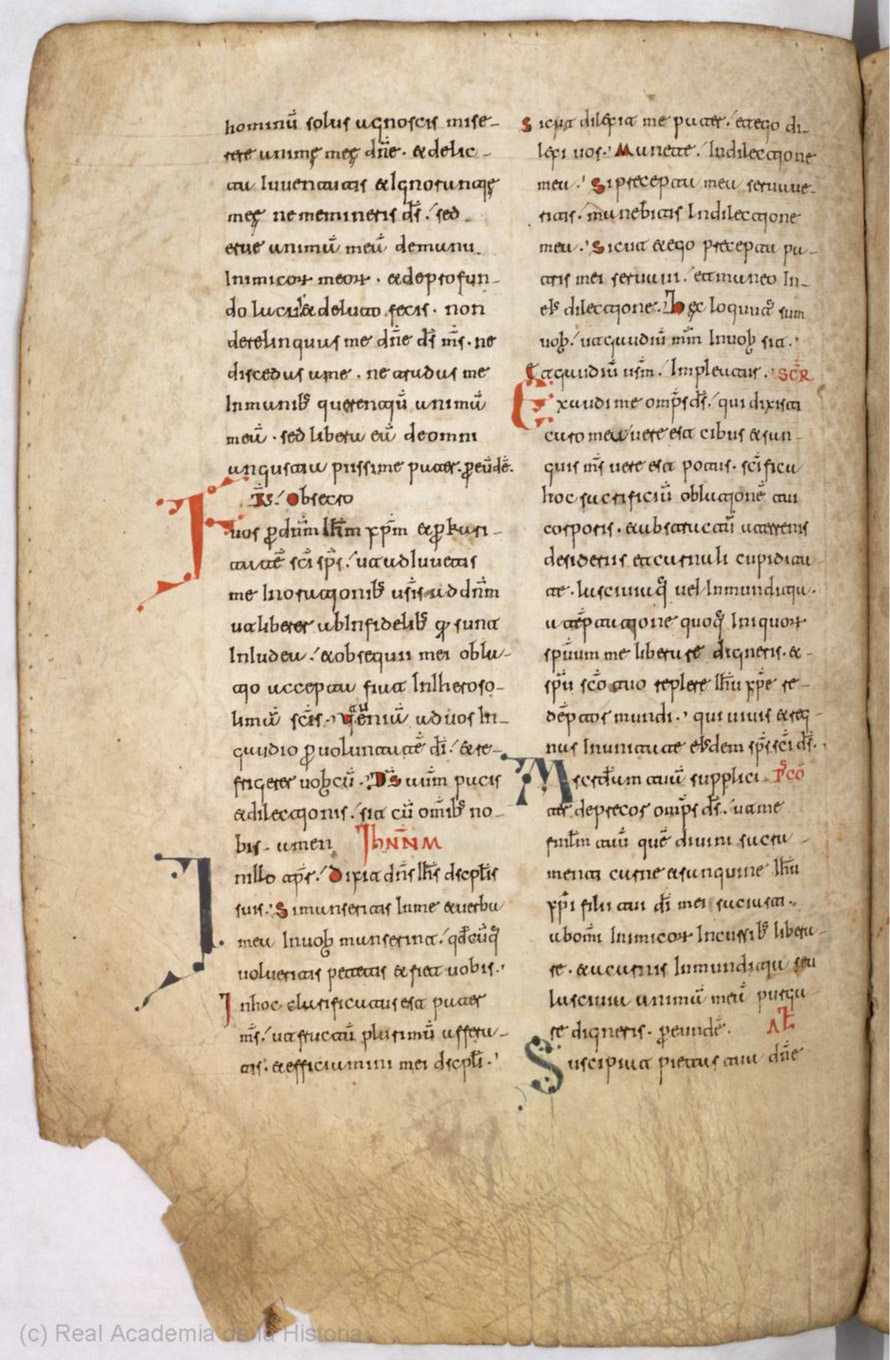 hominū solus agnoscis mise-
rere anime meę dn̄e · & delic-
ta Iuventutis & Ignorantię
meę ne memineris d̄s ./ sed
erue animā meā demanu
Inimicoꝝ meoꝝ · & deprofun-
do lacu & deluto fecis · non
derelinquas me dn̄e d̄s m̄s · ne
discedas ame · ne tradas me
Inmanib; querentiū animā
meā · sed libera eā deomni
angustia piissime pater · ꝑ eūdē.
Fr̄s ./ Obsecro
uos ꝑ dn̄m Ih̄m xp̄m & ꝑ kari-
tatē sc̄i sp̄s ./ ut adIuvetis
me Inorationib; ur̄is addn̄m
ut liberer abInfidelib; q̄ sunt
InIudea ./ & obsequii mei obla-
tio accepta fiat InIheroso-
limā sc̄is · ut ueniā aduos In-
gaudio ꝑ voluntatē d̄i ./ & re-
frigerer uobcū · D̄s autm̄ pacis
& dilectionis ./ sit cū omīb; no-
bis · amen Ihn̄nm
In illo tp̄s ./ Dixit dn̄s Ih̄s dscplīs
suis · Si manseritis Inme & verba
mea Inuob̄ manserint ./ qdcūq̄
uolueritis petetis & fiet uobis ·
Inhoc clarificatus est pater
m̄s ./ ut fructū plurimū affera-
tis · & efficiamini mei dscplī ·
Sicut dilexit me pater ./ etego di-
lexi uos · Manete Indilectione
mea · Si precepta mea servave-
ritis · manebitis Indilectione
mea · Sicut & ego precepta pa-
tris mei servavi ./ etmaneo In-
eīs dilectione · Hęc loquut̄ sum
uob̄ ./ utgaudiū mm̄ Inuob̄ sit ·
Etgaudiū ur̄m ./ Impleatur · SCR̄
Exaudi me omp̄s d̄s ./ qui dixisti
caro mea uere est cibus & san-
guis m̄s uere est potus · sc̄ifica
hoc sacrificiū oblationē tui
corporis · & abstractū aterrenis
desideriis etcarnali cupidita-
te · lasciviaq̄ uel Inmunditia ·
a tēptatione quoq̄ Iniquoꝝ
sp̄uum me liberare digneris · &
sp̄u sc̄o tuo replere Ih̄u xp̄e re-
dēptor mundi · qui vivis & reg-
nas Inunitate eīsdem sp̄s sc̄i d̄s ·
Misertum tuū supplici- P̄CŌ
ter deprecor omp̄s d̄s ./ ut me
fmlm̄ tuū quē divini sacra-
menti carne & sanguine Ih̄u
xp̄i filii tui d̄i mei saciasti ·
ab omī Inimicoꝝ Incussib; libera-
re · & a carnis Inmunditia seu
lascivia animā meā purga-
re digneris · ꝑ eundē · AL̄
Suscipiat pietas tua dn̄e
(c) Real Academia de la Historia